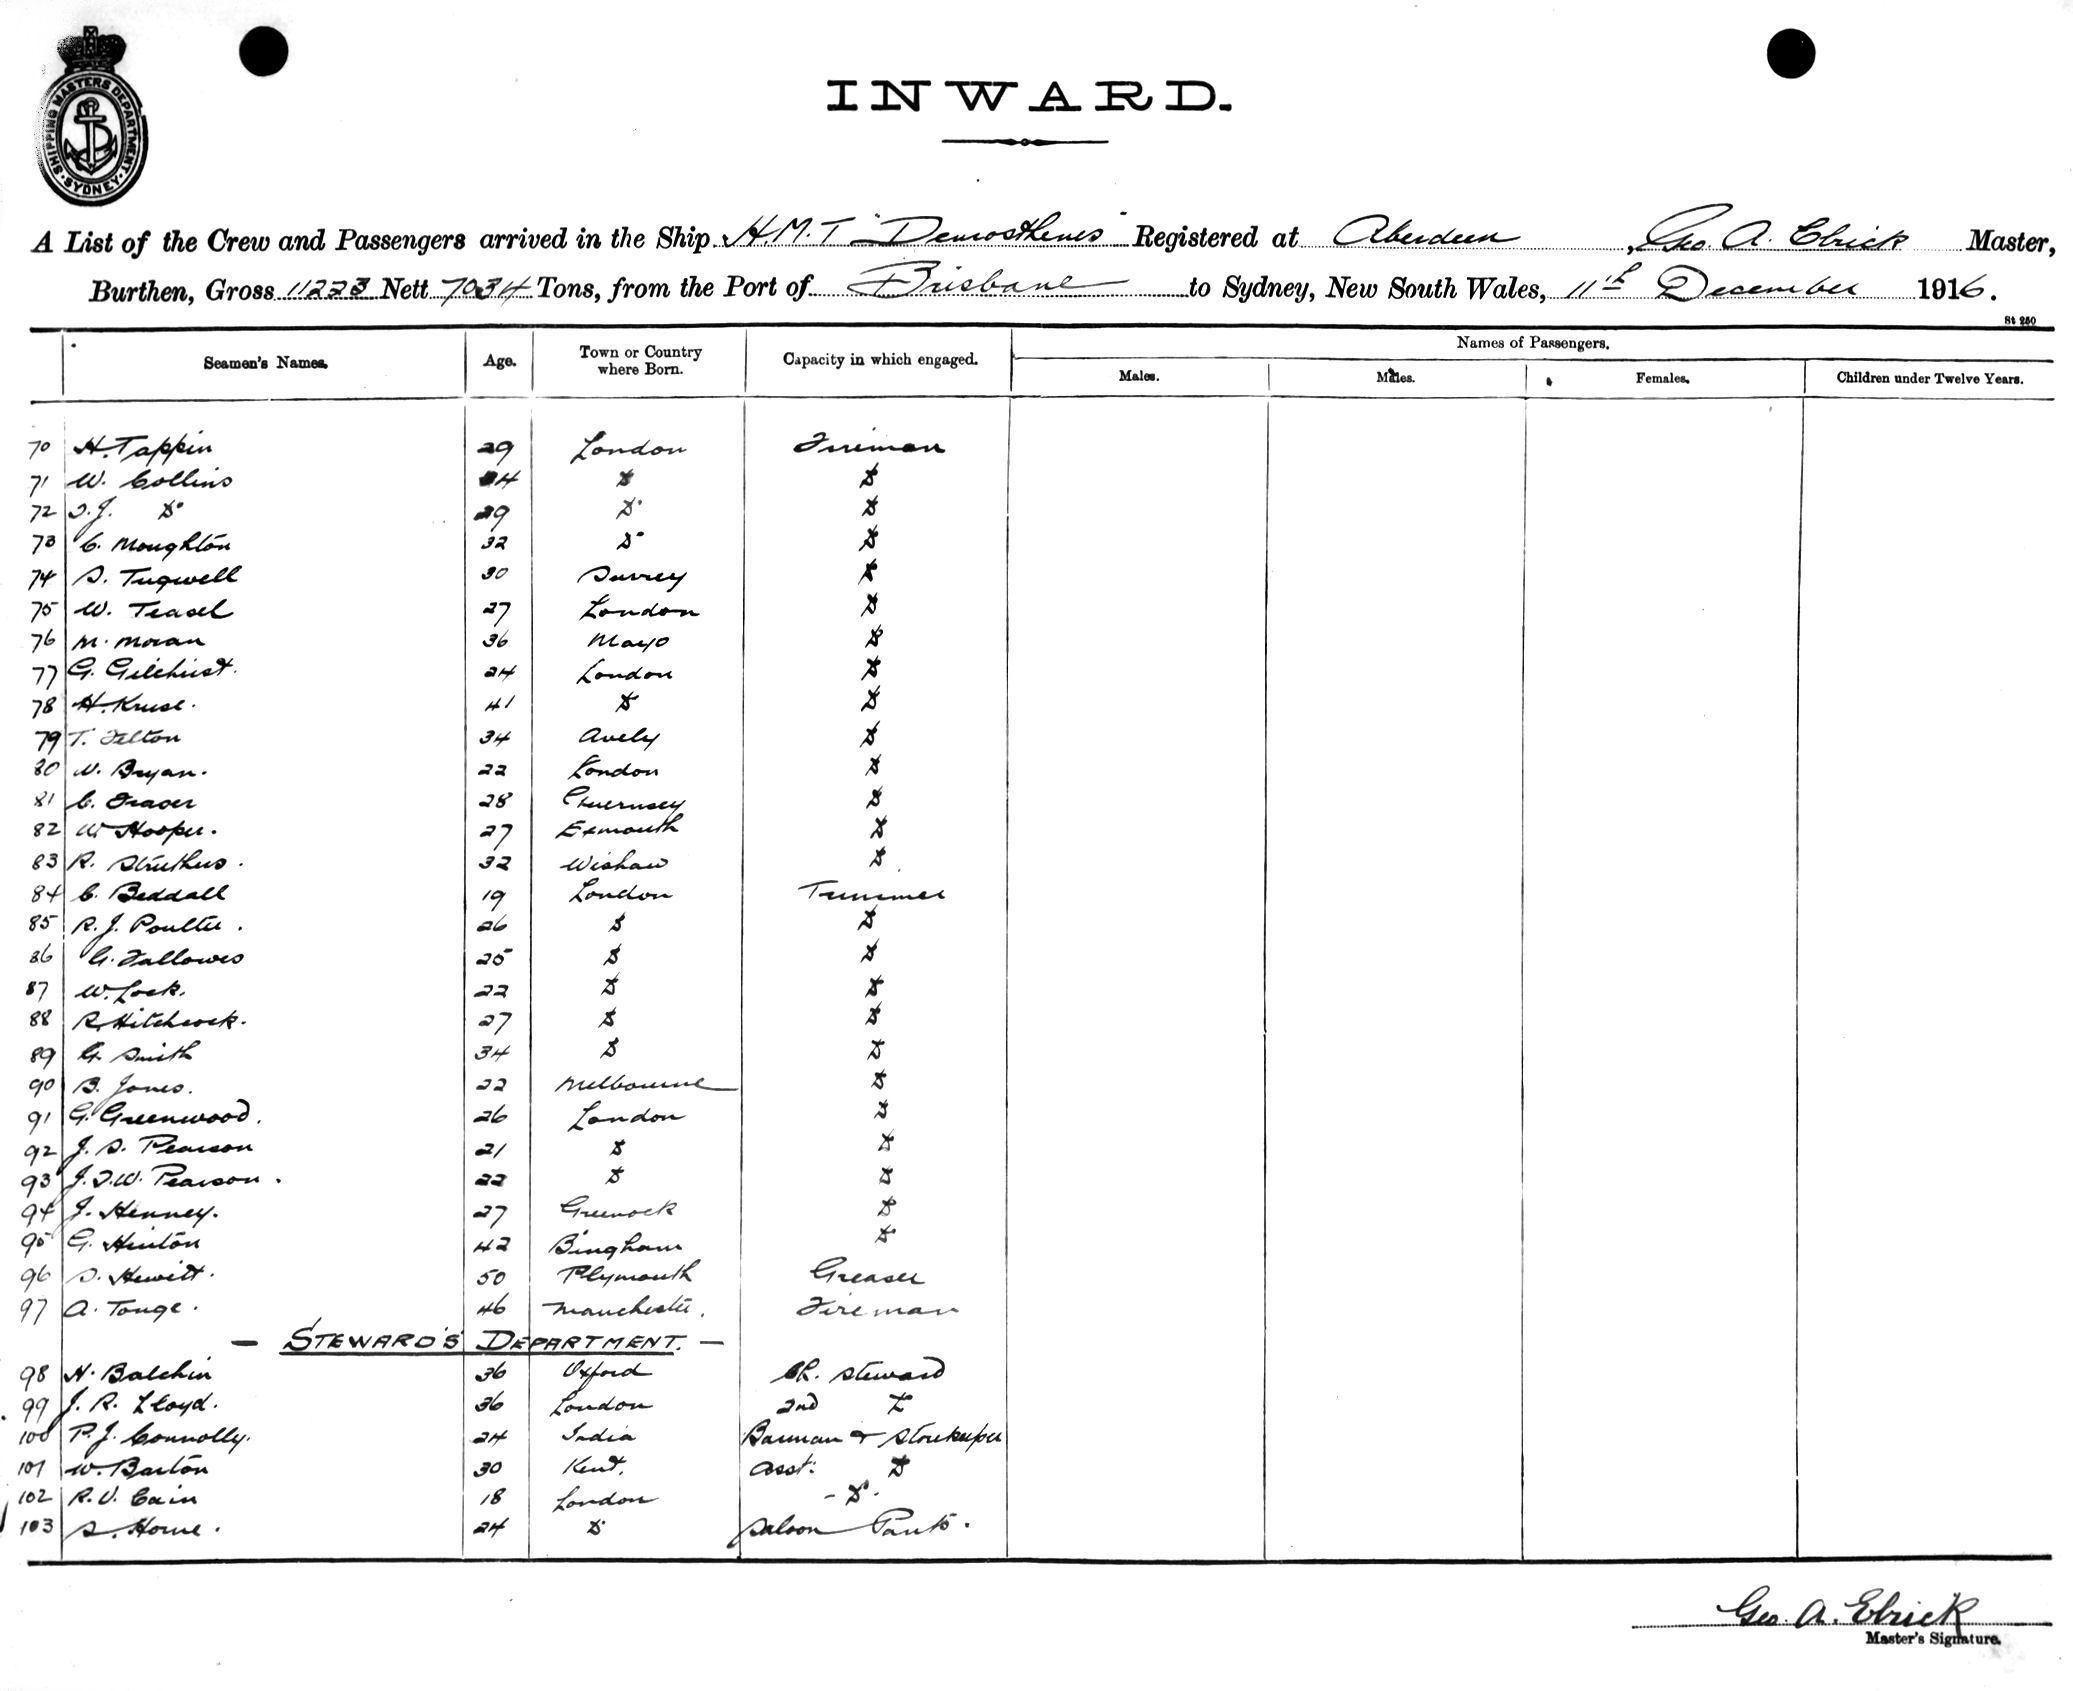 SHIPPING MASTERS DEPARTMENT. SYDNEY.
INWARD.
A List of the Crew and Passengers arrived in the Ship H.M.T "Demosthenes" Registered at Aberdeen, Geo. A. Elrick Master,
Burthen, Gross 11223 Nett 7034 Tons, from the Port of Brisbane to Sydney, New South Wales, 11th December 1916.
St 250
Seamen's Names. Age. Town or Country where Born. Capacity in which engaged. Names of Passengers.
Males. Males. Females. Children under Twelve Years.
70 H. Tappin 29 London Fireman
71 W. Collins Do Do
72 J. Do 29 Do Do
73 C. Moughton 32 Do Do
74 S. Tugwell 30 Surrey Do
75 W. Teasel 27 London Do
76 M. Moran 36 Mayo Do
77 G. Gilchrist. 24 London Do
78 H. Kruse. 41 Do Do
79 T. Felton 34 Avely Do
80 W. Bryan. 22 London Do
81 C. Fraser 28 Guernsey Do
82 W. Hooper. 27 Exmouth Do
83 R. Struthers. 32 Wishaw Do
84 C. Beddall 19 London Trimmer
85 R. J. Poulter. 26 Do Do
86 G. Fallowes 25 Do Do
87 W. Lock. 22 Do Do
88 R. Hitchcock. 27 Do Do
89 G. Smith 34 Do Do
90 B. Jones. 22 Melbourne Do
91 G. Greenwood. 26 London Do
92 J. S. Pearson 21 Do Do
93 J. T. W. Pearson. 22 Do Do
94 J. Henney. 27 Greenock Do
95 G. Hinton 42 Bingham Do
96 S. Hewitt. 50 Plymouth Greaser
97 A. Tonge. 46 Manchester. Fireman
— STEWARD'S DEPARTMENT. —
98 H. Balchin 36 Oxford Ch. Steward
99 J. R. Lloyd. 36 London 2nd Do
100 P. J. Connolly. 24 India Barman & Storekeeper
101 W. Barton 30 Kent. Asst: Do
102 R. V. Cain 18 London - Do -
103 S. Horne. 24 Do Saloon Pantr.
Geo. A. Elrick
Master's Signature.